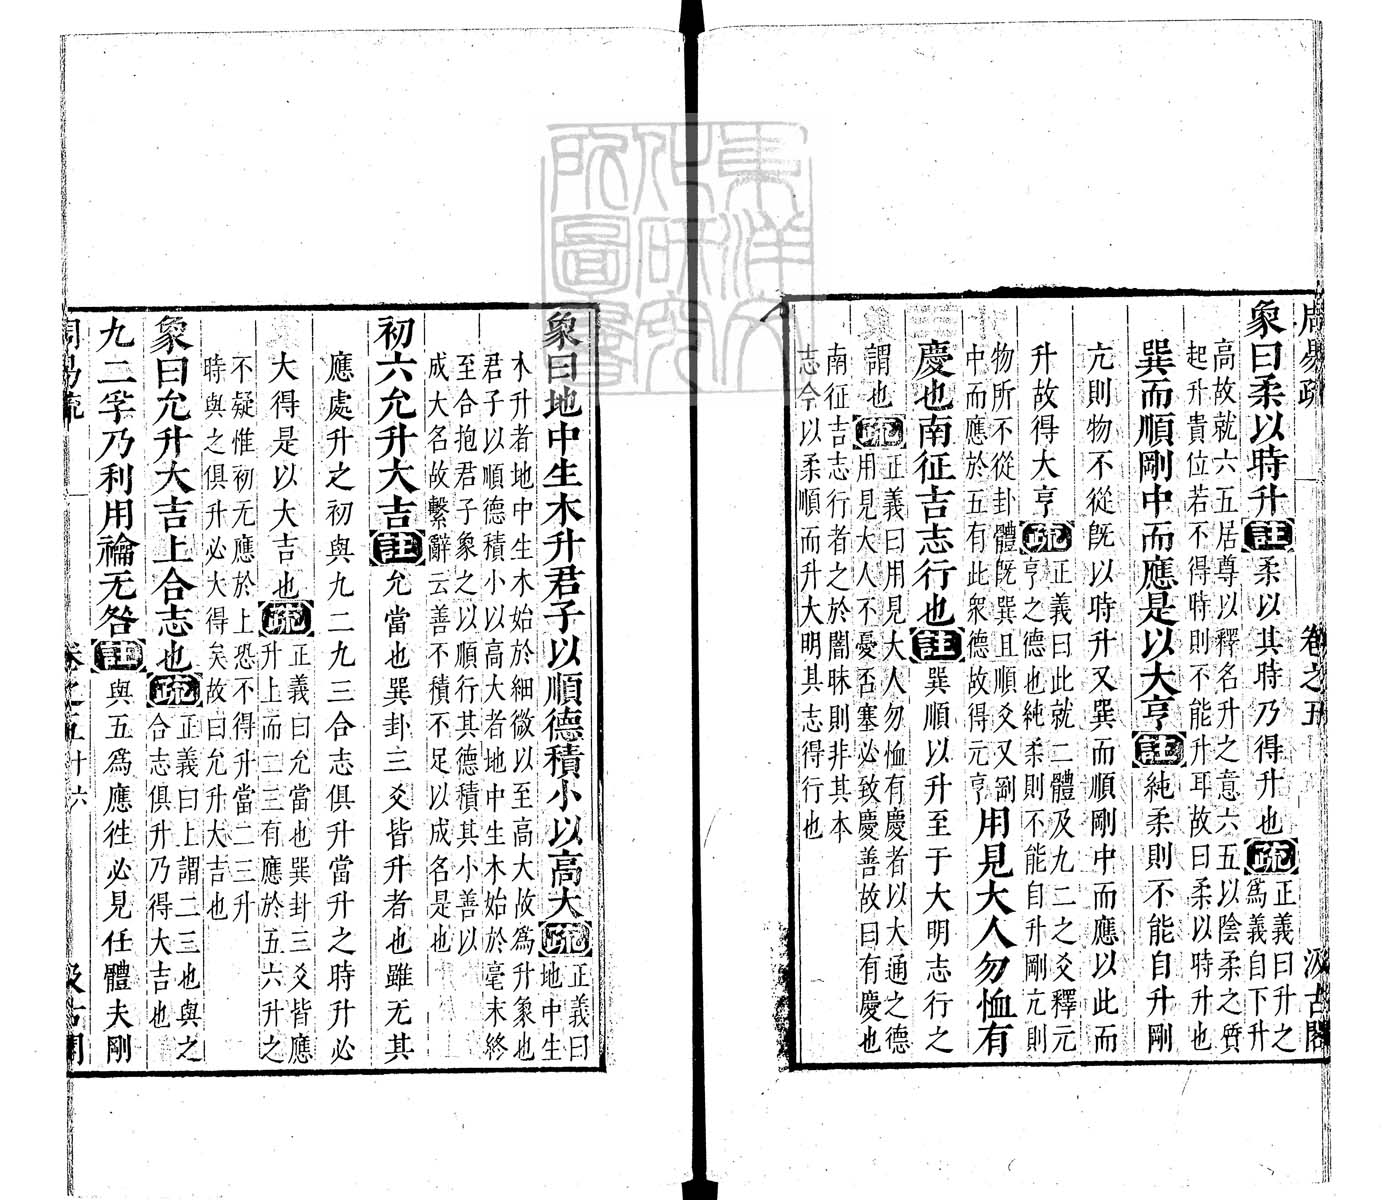 周易疏 卷之五 汲古閣
彖曰柔以時升註柔以其時乃得升也疏正義曰升之
爲義自下升
高故就六五居尊以釋名升之意六五以陰柔之質
起升貴位若不得時則不能升耳故曰柔以時升也
巽而順剛中而應是以大亨註純柔則不能自升剛
亢則物不從旣以時升又巽而順剛中而應以此而
升故得大亨疏正義曰此就二體及九二之爻釋元
亨之德也純柔則不能自升剛亢則
物所不從卦體旣巽且順爻又剛
中而應於五有此衆德故得元亨用見大人勿恤有
慶也南征吉志行也註巽順以升至于大明志行之
謂也疏正義曰用見大人勿恤有慶者以大通之德
用見大人不憂否塞必致慶善故曰有慶也
南征吉志行者之於闇昧則非其本
志今以柔順而升大明其志得行也
象曰地中生木升君子以順德積小以高大疏正義曰
地中生
木升者地中生木始於細微以至高大故爲升象也
君子以順德積小以高大者地中生木始於毫末終
至合抱君子象之以順行其德積其小善以
成大名故繫辭云善不積不足以成名是也
初六允升大吉註允當也巽卦三爻皆升者也雖无其
應處升之初與九二九三合志俱升當升之時升必
大得是以大吉也疏正義曰允當也巽卦三爻皆應
升上而二三有應於五六升之
不疑惟初无應於上恐不得升當二三升
時與之俱升必大得矣故曰允升大吉也
象曰允升大吉上合志也疏正義曰上謂二三也與之
合志俱升乃得大吉也
九二孚乃利用禴无咎註與五爲應徃必見任體夫剛
周易疏 卷之五 十六 汲古閣
東洋文化研究所圖書